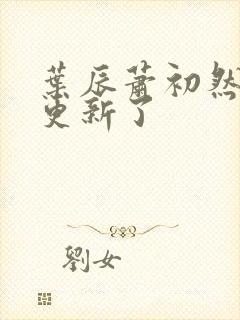 葉辰蕭初然
更新了
劉女